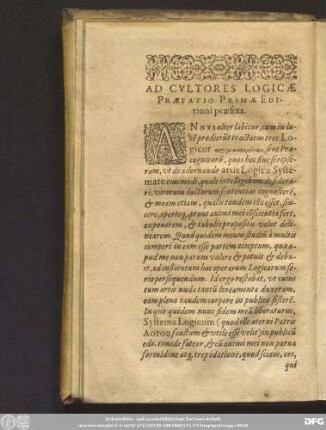 AD CVLTORES LOGICÆ
PRÆFATIO PRIMÆ EDI-
tioni præfixa.
ANNVS alter labitur, cum in lu-
cē prodierūt tractatus tres Lo-
gicor sive Præ-
cognitorū, quos hoc fine scripse-
ram, vt de adornando artis Logicæ Syste-
mate eiusmodi, quale intelligebam desidera-
ri, virorum doctorum sententias cognoscerē,
& meam etiam, qualis tandem ista esset, sin-
cerè, apertéq; prout animi mei conscientia fert,
exponerem, & tabulis propositis velut deli-
nearem. Quod quidem meum studiū à multis
comperi in eam esse partem acceptum, quæ a-
pud me non parum valere & potuit & debu-
it, ad institutum hoc operarum Logicarum se-
riò persequendum. Id ergo restabat, vt cuius
tum ortis nudè tantū lineamenta duxeram,
eam pleno tandem corpore in publico sisterē.
In quo quidem nunc fidem meā liberaturus,
Systema Logicum (quod ille æterni Patris
faustum & vtile esse velit) in publicū
edo. timide fateor, & cū animi mei non parua
formidine atq; trepidatione, quod sciam, eos,
qui